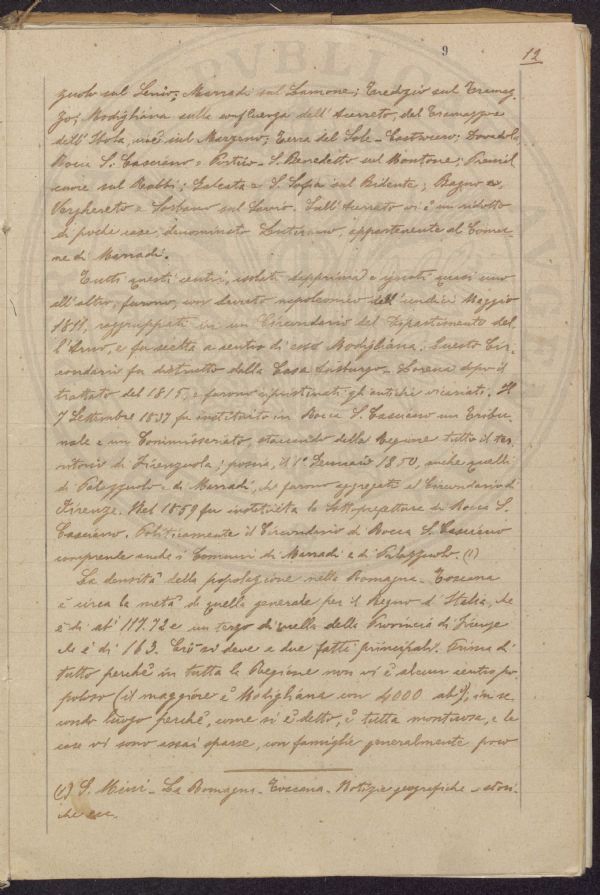 9
12
zuolo sul Senio; Marradi sul Lamone; Tredozio sul Tramaz-
zo; Modigliana sulla confluenza dell'Acerreto, del Tramazzo e
dell'Ibola, cioè sul Marzeno; Terra del Sole - Castrocaro; Dovadola
Rocca S. Casciano e Portico - S. Benedetto sul Montone; Premil
cuore sul Rabbi; Galeata e S. Sofia sul Bidente; Bagno e
Verghereto e Sorbano sul Savio. Sull'Acerreto vi è un ridotto
di poche case, denominato Lutirano, appartenente al Comu-
ne di Marradi.
Tutti questi centri, isolati dapprima e ignoti quasi uno
all'altro, furono, con decreto napoleonico dell'undici Maggio
1811, raggruppati in un Circondario del Dipartimento del
l'Arno, e fu scelta a centro di esso Modigliana. Questo Cir-
condario fu distrutto dalla Casa Asburgo - Lorena dopo il
trattato del 1815, e furono ripristinati gli antichi vicariati. Il
7 Settembre 1837 fu instituito in Rocca S. Casciano un Tribu-
nale e un Commissariato, staccando dalla Regione tutto il ter
ritorio di Firenzuola; poscia, il 1º Gennaio 1850, anche quelli
di Palazzuolo e di Marradi, che furono aggregati al Circondario di
Firenze. Nel 1859 fu instituita la Sottoprefettura di Rocca S.
Casciano. Politicamente il Circondario di Rocca S. Casciano
comprende anche i Comuni di Marradi e di Palazzuolo. (1)
La densità della popolazione nella Romagna - Toscana
è circa la metà di quella generale per il Regno d'Italia, che
è di ab! 117.72 e un terzo di quella della Provincia di Firenze
che è di 163. Ciò si deve a due fatti principali. Prima di
tutto perchè in tutta la Regione non vi è alcun centro po
poloso (il maggiore è Modigliana con 4000 ab!), in se
condo luogo perchè, come si è detto, è tutta montuosa, e le
case vi sono assai sparse, con famiglie generalmente poco
(1) G. Mini - La Romagna - Toscana - Notizie geografiche - stori
che ecc.